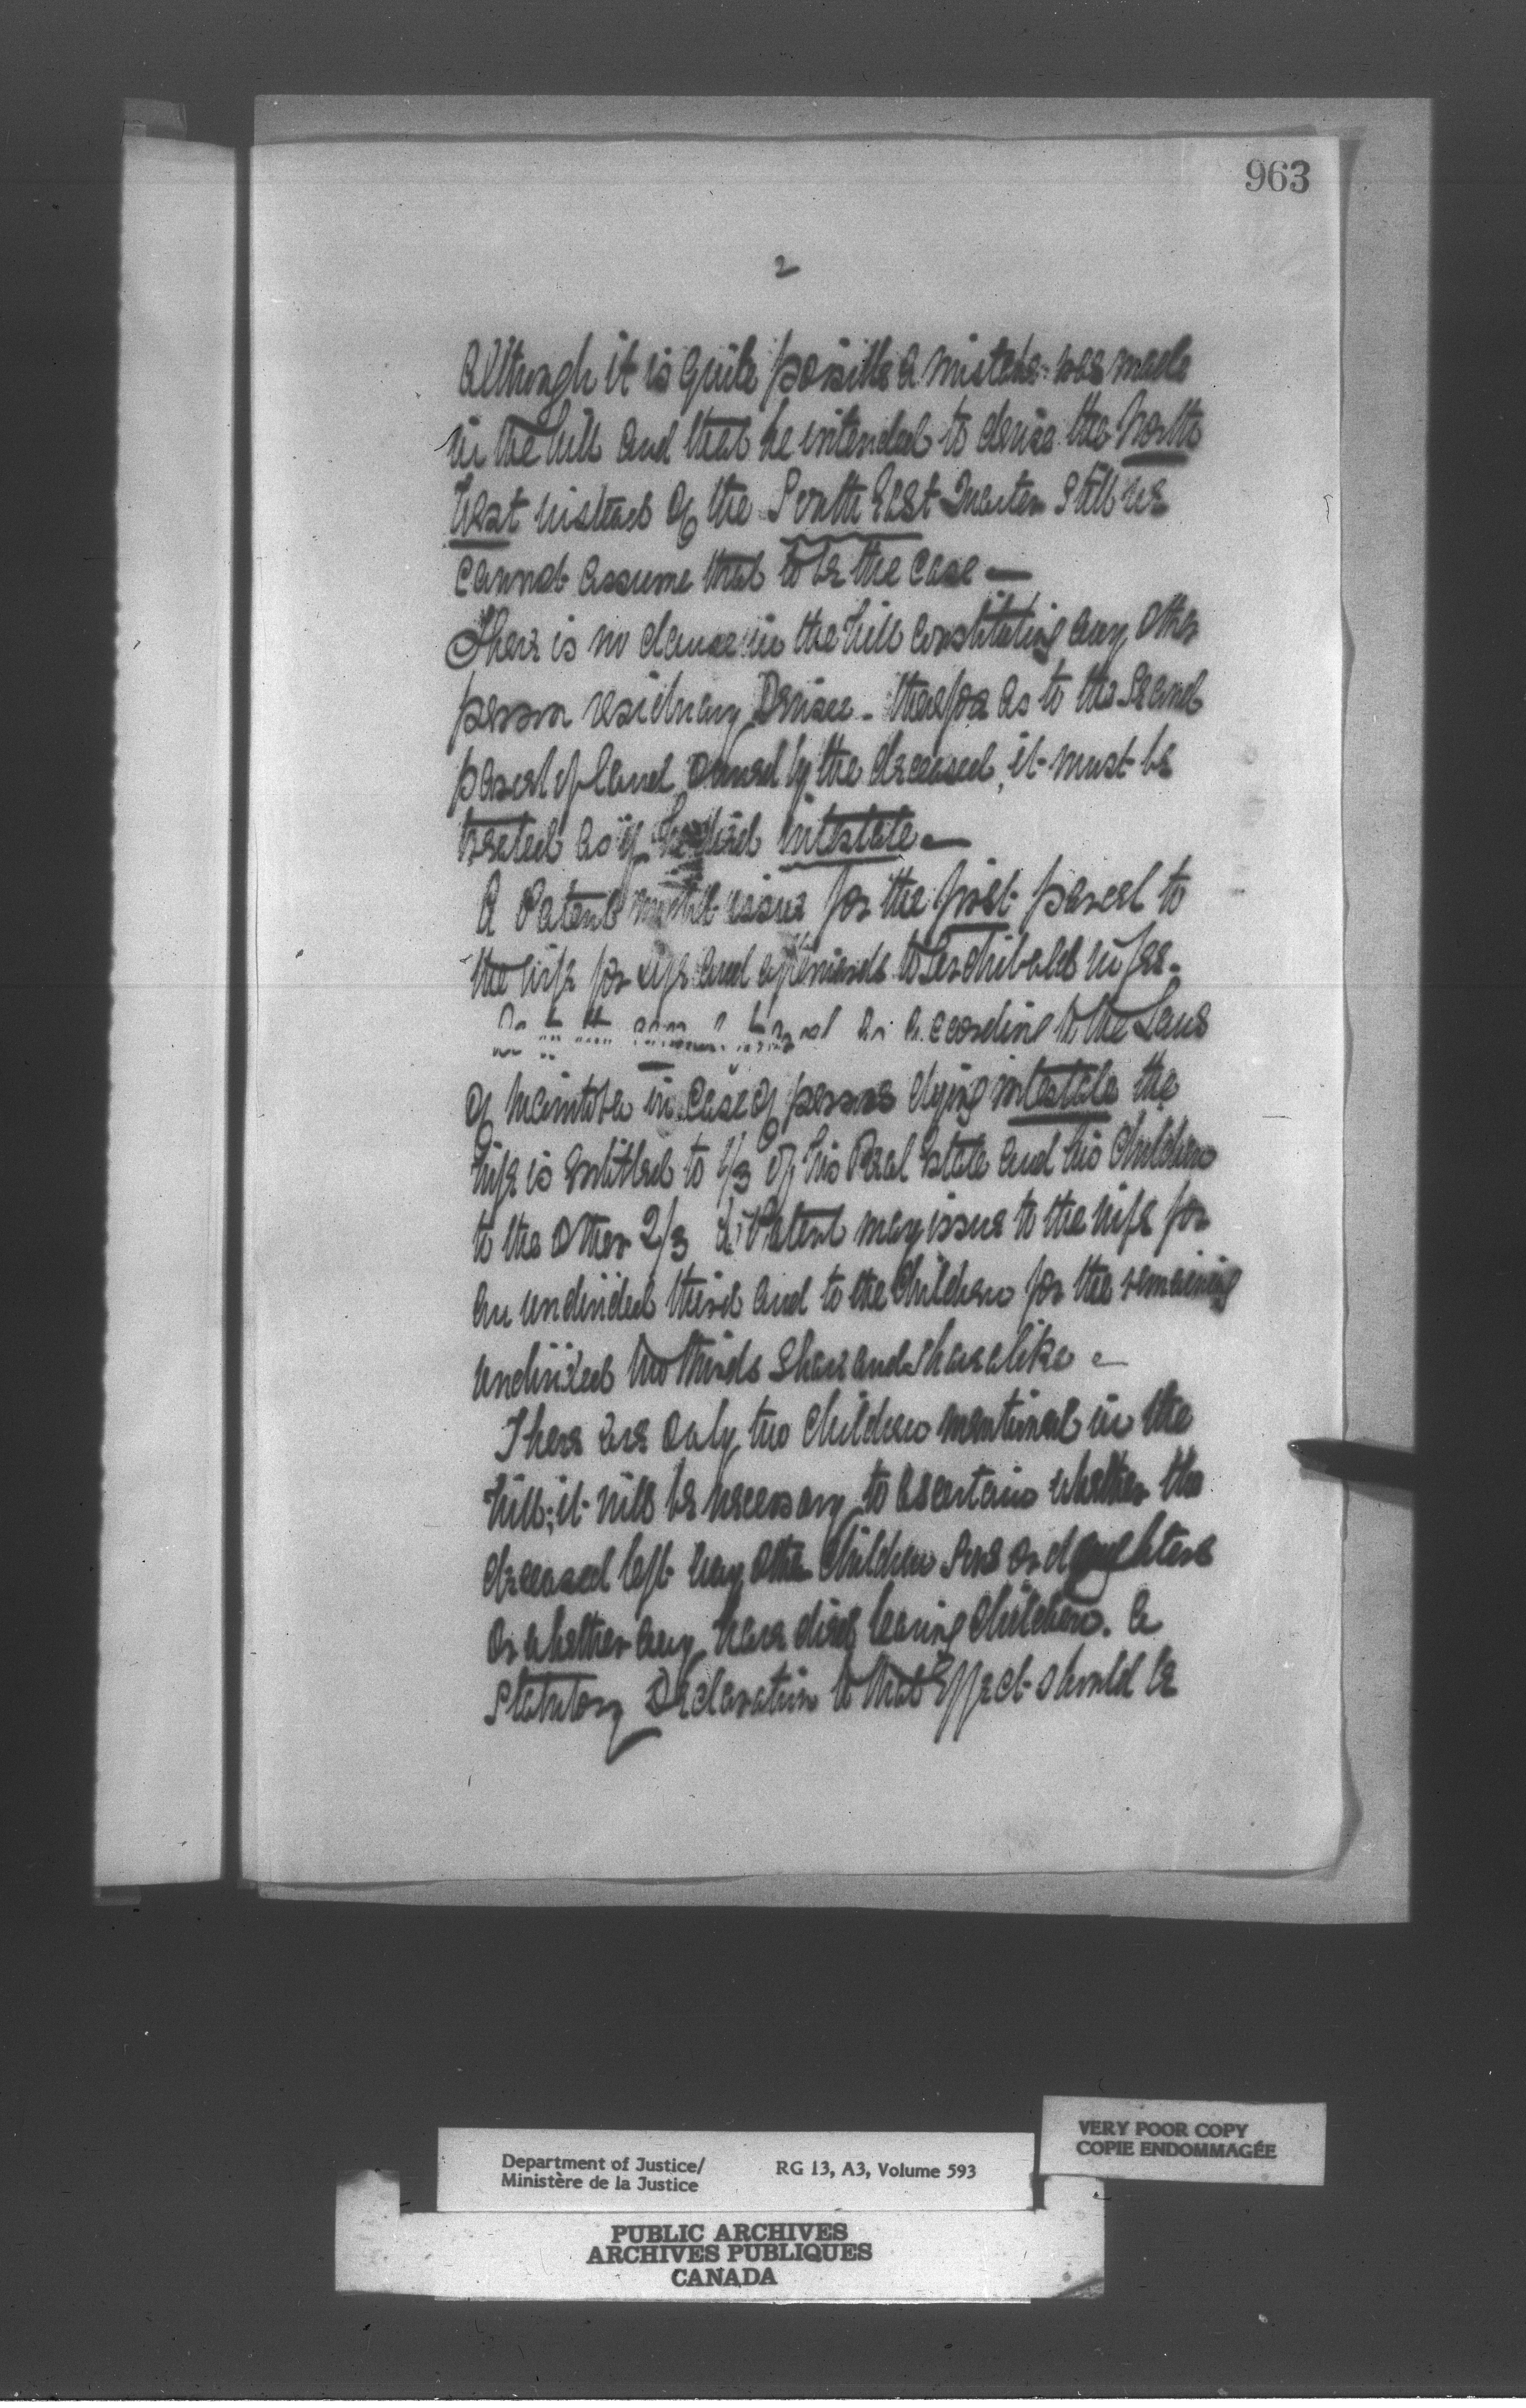 963
2
Although it is quite possible a mistake was made
in the Will and that he intended to devise the North
West instead of the South East Quarter still we
cannot assume that to be the case —
There is no clause in the Will constituting any other
person residuary Devisee - therefore as to the second
parcel of land owned by the deceased, it must be
treated as if he died intestate —
A Patent might issue for the first parcel to
the wife for life and afterwards to Archibald in fee.
As to the second parcel as according to the Laws
of Manitoba in case of persons dying intestate the
wife is entitled to 1/3 of his Real Estate and his Children
to the other 2/3 a Patent may issue to the wife for
an undivided third and to the Children for the remaining
undivided two thirds share and share alike —
There are only two children mentioned in the
Will; it will be necessary to ascertain whether the
deceased left any other Children Sons or daughters
or whether any have died leaving children. A
Statutory Declaration to that Effect should be
VERY POOR COPY
COPIE ENDOMMAGÉE
Department of Justice/ RG 13, A3, Volume 593
Ministère de la Justice
PUBLIC ARCHIVES
ARCHIVES PUBLIQUES
CANADA